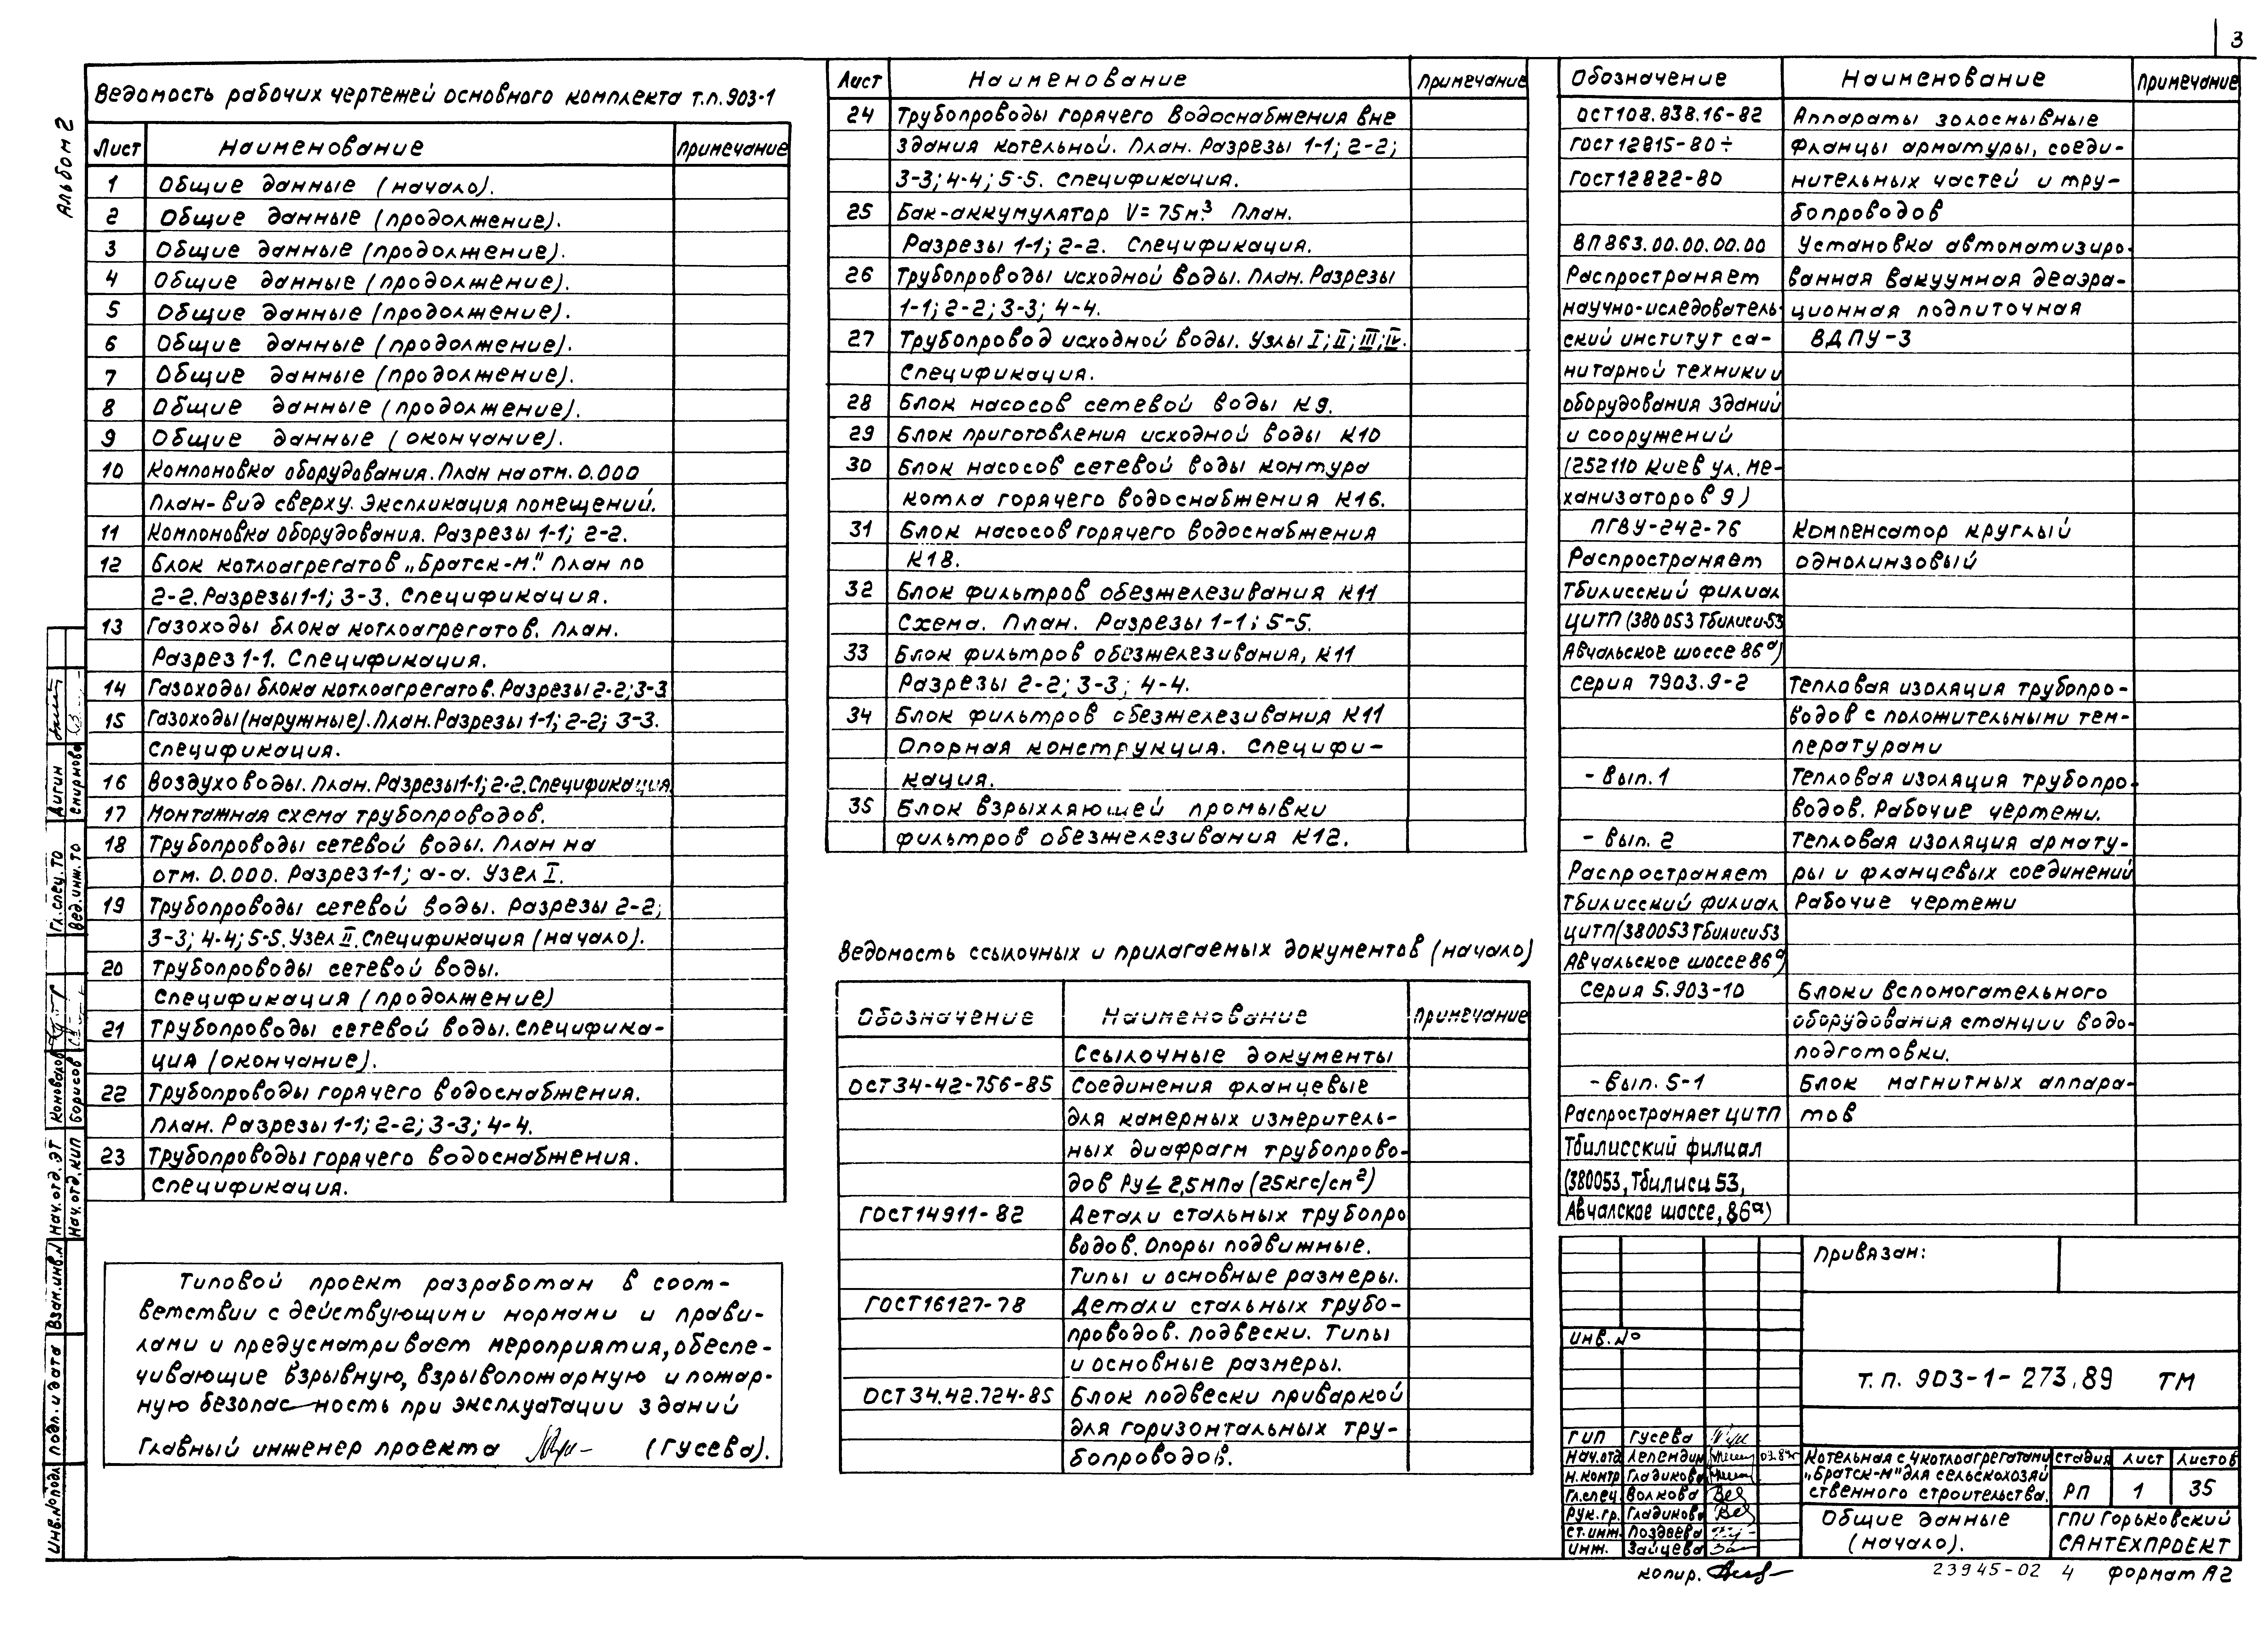 3
Альбом 2
Ведомость рабочих чертежей основного комплекта т.п. 903-1
Лист Наименование Примечание
1 Общие данные (начало).
2 Общие данные (продолжение).
3 Общие данные (продолжение).
4 Общие данные (продолжение).
5 Общие данные (продолжение).
6 Общие данные (продолжение).
7 Общие данные (продолжение).
8 Общие данные (продолжение).
9 Общие данные (окончание).
10 Компоновка оборудования. План на отм. 0.000
План-вид сверху. Экспликация помещений.
11 Компоновка оборудования. Разрезы 1-1; 2-2.
12 Блок котлоагрегатов „Братск-М." План по
2-2. Разрезы 1-1; 3-3. Спецификация.
13 Газоходы блока котлоагрегатов. План.
Разрез 1-1. Спецификация.
14 Газоходы блока котлоагрегатов. Разрезы 2-2; 3-3
15 Газоходы (наружные). План. Разрезы 1-1; 2-2; 3-3.
Спецификация.
16 Воздуховоды. План. Разрезы 1-1; 2-2. Спецификация
17 Монтажная схема трубопроводов.
18 Трубопроводы сетевой воды. План на
отм. 0.000. Разрез 1-1; а-а. Узел I.
19 Трубопроводы сетевой воды. Разрезы 2-2;
3-3; 4-4; 5-5. Узел II. Спецификация (начало).
20 Трубопроводы сетевой воды.
Спецификация (продолжение)
21 Трубопроводы сетевой воды. Специфика-
ция (окончание).
22 Трубопроводы горячего водоснабжения.
План. Разрезы 1-1; 2-2; 3-3; 4-4.
23 Трубопроводы горячего водоснабжения.
Спецификация.
Типовой проект разработан в соот-
ветствии с действующими нормами и прави-
лами и предусматривает мероприятия, обеспе-
чивающие взрывную, взрывопожарную и пожар-
ную безопас-ность при эксплуатации зданий
Главный инженер проекта (Гусева).
Лист Наименование Примечание
24 Трубопроводы горячего водоснабжения вне
здания котельной. План. Разрезы 1-1; 2-2;
3-3; 4-4; 5-5. Спецификация.
25 Бак-аккумулятор V=75м.³ План.
Разрезы 1-1; 2-2. Спецификация.
26 Трубопроводы исходной воды. План. Разрезы
1-1; 2-2; 3-3; 4-4.
27 Трубопровод исходной воды. Узлы I; II; III; IV.
Спецификация.
28 Блок насосов сетевой воды К9.
29 Блок приготовления исходной воды К10
30 Блок насосов сетевой воды контура
котла горячего водоснабжения К16.
31 Блок насосов горячего водоснабжения
К18.
32 Блок фильтров обезжелезивания К11
Схема. План. Разрезы 1-1; 5-5.
33 Блок фильтров обезжелезивания, К11
Разрезы 2-2; 3-3; 4-4.
34 Блок фильтров обезжелезивания К11
Опорная конструкция. Специфи-
кация.
35 Блок взрыхляющей промывки
фильтров обезжелезивания К12.
Ведомость ссылочных и прилагаемых документов (начало)
Обозначение Наименование Примечание
Ссылочные документы
ОСТ34-42-756-85 Соединения фланцевые
для камерных измеритель-
ных диафрагм трубопрово-
дов Ру≤2,5МПа (25кгс/см²)
ГОСТ14911-82 Детали стальных трубопро
водов. Опоры подвижные.
Типы и основные размеры.
ГОСТ16127-78 Детали стальных трубо-
проводов. Подвески. Типы
и основные размеры.
ОСТ34.42.724-85 Блок подвески приваркой
для горизонтальных тру-
бопроводов.
Обозначение Наименование Примечание
ОСТ108.838.16-82 Аппараты золосмывные
ГОСТ12815-80÷ Фланцы арматуры, соеди-
ГОСТ12822-80 нительных частей и тру-
бопроводов
ВП863.00.00.00.00 Установка автоматизиро-
Распространяет ванная вакуумная деаэра-
научно-иследователь- ционная подпиточная
ский институт са- ВДПУ-3
нитарной техники и
оборудования зданий
и сооружений
(252110 Киев ул. Ме-
ханизаторов 9)
ПГВУ-242-76 Компенсатор круглый
Распространяет однолинзовый
Тбилисский филиал
ЦИТП (380053 Тбилиси 53
Авчальское шоссе 86ᵃ)
Серия 7903.9-2 Тепловая изоляция трубопро-
водов с положительными тем-
пературами
- Вып. 1 Тепловая изоляция трубопро-
водов. Рабочие чертежи.
- вып. 2 Тепловая изоляция армату-
Распространяет ры и фланцевых соединений
Тбилисский филиал Рабочие чертежи
ЦИТП (380053 Тбилиси 53
Авчальское шоссе 86ᵃ)
Серия 5.903-10 Блоки вспомогательного
оборудования станции водо-
подготовки.
- Вып. 5-1 Блок магнитных аппара-
Распространяет ЦИТП тов
Тбилисский филиал
(380053, Тбилиси 53,
Авчалское шоссе, 86ᵃ)
Привязан:
инв. №
Т.П. 903-1-273.89 ТМ
ГИП Гусева
Нач.отд Лепендин
Н.контр Гладикова
Гл.спец. Волкова
Рук.гр. Гладикова
Ст.инж. Поздеева
Инж. Зайцева
Котельная с 4 котлоагрегатами
„Братск-М" для сельскохозяй
ственного строительства.
Стадия Лист Листов
РП 1 35
Общие данные
(начало).
ГПИ Горьковский
САНТЕХПРОЕКТ
Копир.
23945-02 4 Формат А2
Гл.спец.ТО Дигин
Вед.инж.ТО Смирнова
Нач.отд.ЭТ Коновалов
Нач.отд.КИП Борисов
Взам.инв.№
Подп. и дата
Инв.№ подл